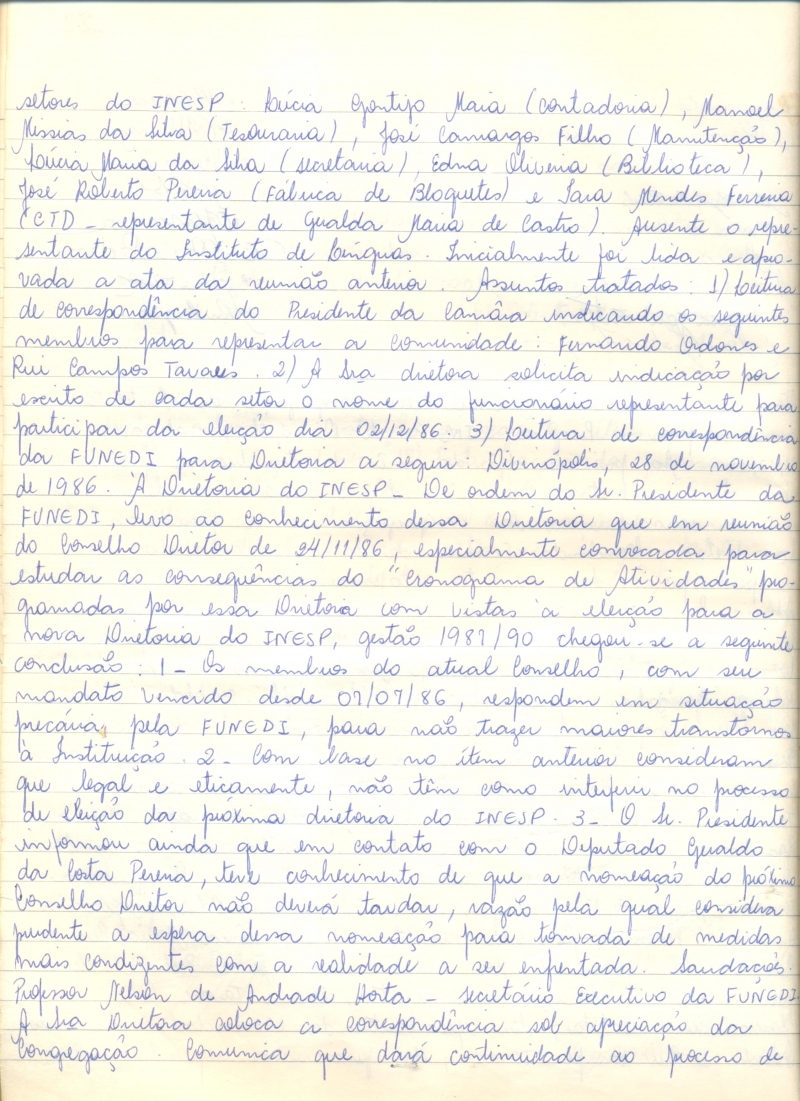 setores do INESP: Lúcia Gontijo Maia (contadoria), Manoel
Messias da Silva (Tesouraria), José Camargos Filho (Manutenção),
Lúcia Maria da Silva (secretaria), Edna Oliveira (Biblioteca),
José Roberto Pereira (Fábrica de Bloquetes) e Sara Mendes Ferreira
(CTD - representante de Geralda Maria de Castro). Ausente o repre-
sentante do Instituto de Línguas. Inicialmente foi lida e apro-
vada a ata da reunião anterior. Assuntos tratados: 1) Leitura
de correspondência do Presidente da Camâra indicando os seguintes
membros para representar a comunidade: Fernando Ordones e
Rui Campos Tavares. 2) A Sra diretora solicita indicação por
escrito de cada setor o nome do funcionário representante para
participar da eleição dia 02/12/86. 3) Leitura de correspondência
da FUNEDI para Diretoria a seguir: Divinópolis, 28 de novembro
de 1986. À Diretoria do INESP - De ordem do Sr. Presidente da
FUNEDI, levo ao conhecimento dessa Diretoria que em reunião
do Conselho Diretor de 24/11/86, especialmente convocada para
estudar as consequências do "Cronograma de Atividades" pro-
gramadas por essa Diretoria com vistas à eleição para a
nova Diretoria do INESP, gestão 1987/90 chegou-se a seguinte
conclusão: 1 - Os membros do atual Conselho, com seu
mandato vencido desde 07/07/86, respondem em situação
precária, pela FUNEDI, para não trazer maiores transtornos
à Instituição. 2 - Com base no ítem anterior consideram
que legal e eticamente, não têm como interferir no processo
de eleição da próxima diretoria do INESP. 3 - O Sr. Presidente
informou ainda que em contato com o Deputado Geraldo
da Costa Pereira, teve conhecimento de que a nomeação do próximo
Conselho Diretor não deverá tardar, razão pela qual considera
prudente a espera dessa nomeação para tomada de medidas
mais condizentes com a realidade a ser enfrentada. Saudações.
Professor Nelson de Andrade Horta - secretário Executivo da FUNEDI.
A Sra Diretora coloca a correspondência sob apreciação da
Congregação. Comunica que dará continuidade ao processo de